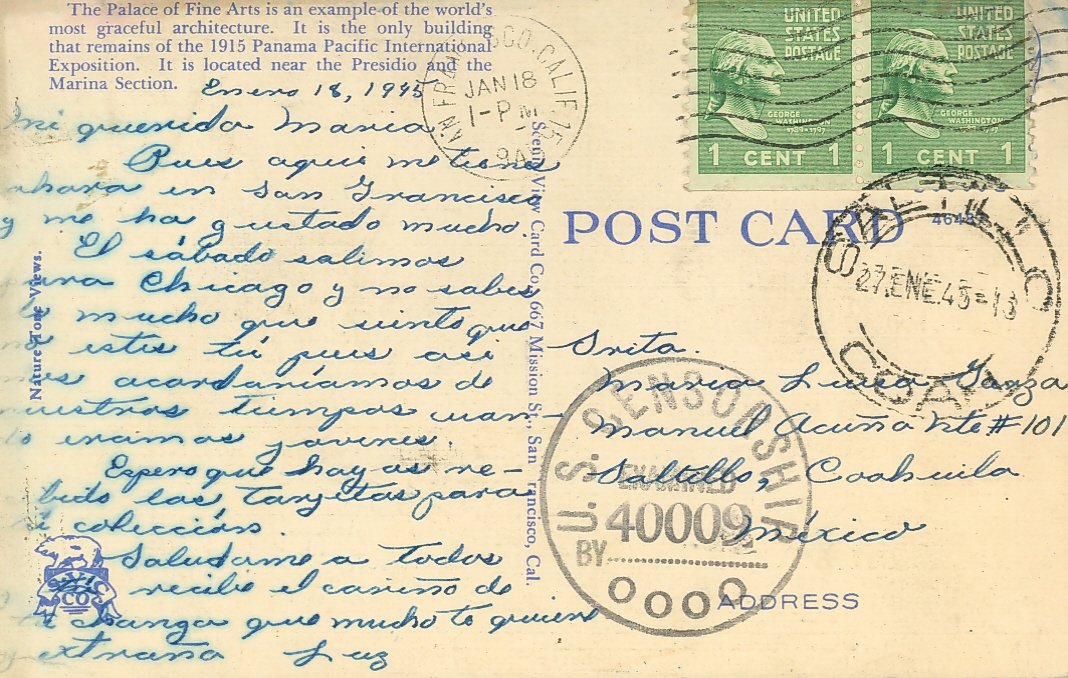 The Palace of Fine Arts is an example of the world's
most graceful architecture. It is the only building
that remains of the 1915 Panama Pacific International
Exposition. It is located near the Presidio and the
Marina Section.
Enero 18, 1945
Mi querida Maria
Pues aqui me tienes
ahora en San Francisco
y me ha gustado mucho.
El sábado salimos
para Chicago y no sabes
lo mucho que siento que
no estes tú pues asi
nos acordaríamos de
nuestros tiempos cuan-
do eramos jovenes.
Espero que hayas re-
bido las tarjetas para
colección
Saludame a todos
recibe el cariño de
changa que mucho te quiere
extraña Luz
Nature Tone Views.
Scenic View Card Co., 667 Mission St., San Francisco, Cal.
SAN FRANCISCO, CALIF. 15
JAN 18
1-PM
UNITED
STATES
POSTAGE
GEORGE
WASHINGTON
1789-1797
1 CENT 1
UNITED
STATES
POSTAGE
GEORGE
WASHINGTON
1789-1797
1 CENT 1
POST CARD
SALTILLO
27.ENE.45=13
COAH
Srita.
Maria Luisa Garza
Manuel Acuña Nte # 101
Saltillo, Coahuila
México
U. S. CENSORSHIP
EXAMINED
40009
BY
ADDRESS
CO